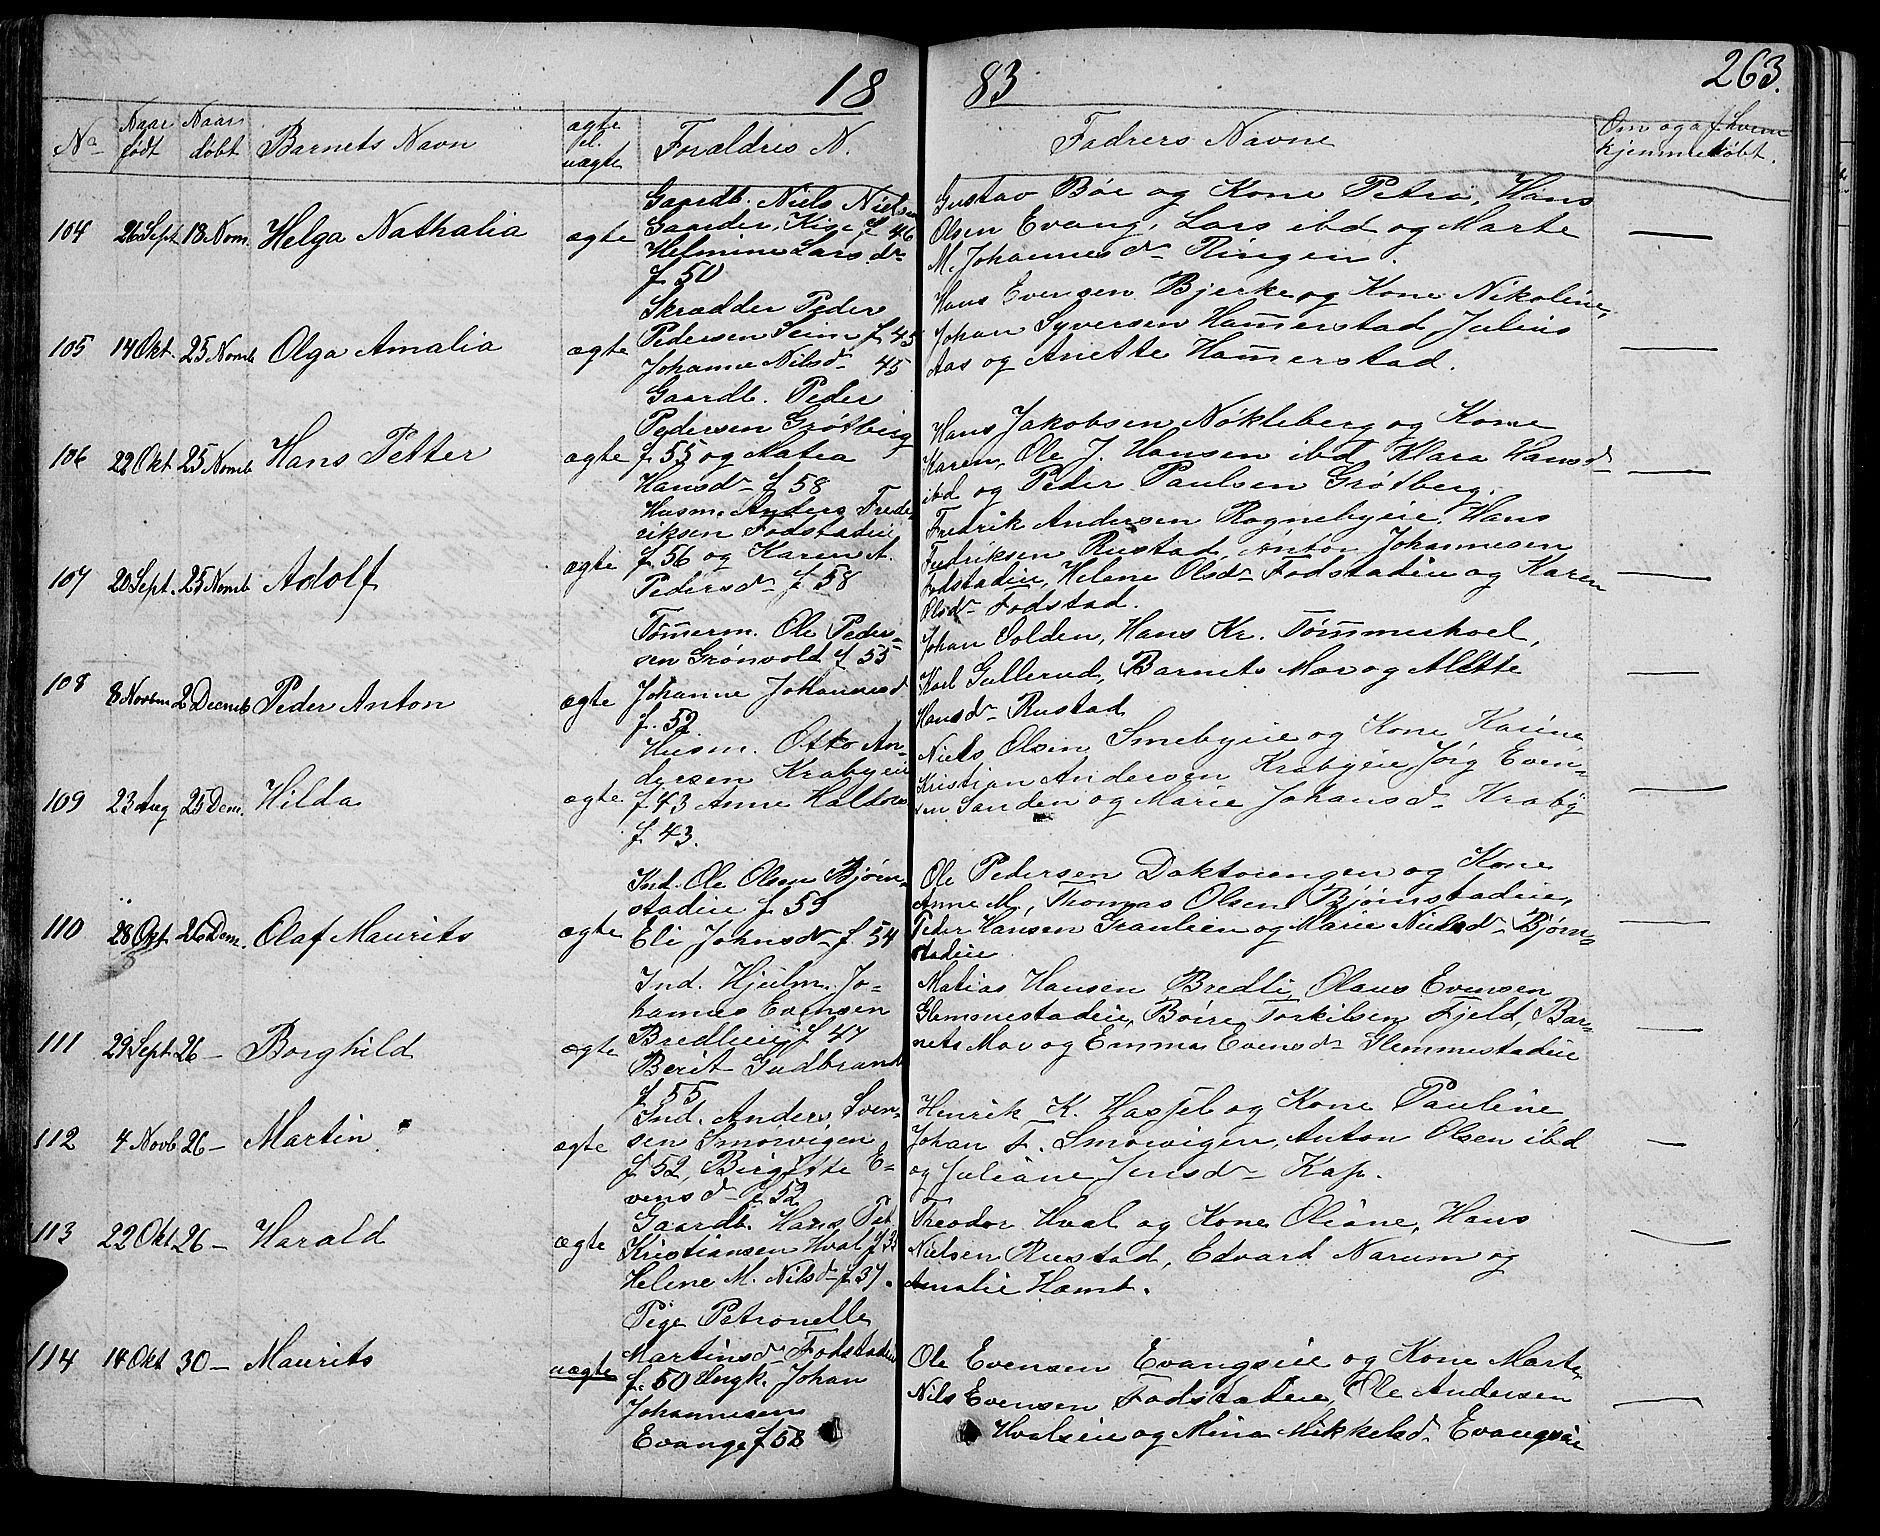 18 83 263.
No Naar født Naar døbt Barnets Navn ægte el. uægte Forældres N. Fadrers Navne Om og af hvem hjemmedøbt.
104 26 Sept 18 Novm. Helga Nathalia ægte
Gaardb. Niels Nielsen
Sander, Kige f 46
Helmine Larsdr
f 50
Gustav Bøe og Kone Petra, Hans
Olsen Evang, Lars ibd og Marte
M. Johannesdr Ringen.
105 14 Okt. 25 Novmb Olga Amalia ægte
Skrædder Peder
Pedersen Seim f 45
Johanne Nilsdr 45
Hans Evensen Bjerke og Kone Nikoline,
Johan Syversen Hamerstad, Julius
Aas og Anette Hamerstad.
106 22 Okt 25 Novmb Hans Petter ægte
Gaardb. Peder
Pedersen Grøtberg
f. 55 og Matea
Hansdr f 58
Hans Jakobsen Nøkleberg og Kone
Karen, Ole J. Hansen ibd Klara Hansdr
ibd og Peder Paulsen Grøtberg.
107 20 Sept. 25 Novmb Adolf ægte
Husm. Anders Frede-
riksen Fodstadeie
f. 56 og Karen A.
Pedersdr f 58
Fredrik Andersen Rognebyeie, Hans
Fredriksen Rustad, Anton Johannesen
Fodstadeie, Helene Olsdr Fodstadeie og Karen
Olsdr Fodstad.
108 8 Novem 2 Decmb Peder Anton ægte
Tømerm. Ole Peder-
sen Grønvold f 55
Johanne Johannesd
f. 52.
Johan Solden, Hans Kr. Tømmerhoel,
Karl Gullerud, Barnets Mor og Alette
Hansdr Rustad
109 23 Aug 25 Dem. Hilda ægte
Husm. Otto An-
dersen Krabyeie
f. 43 Anne Haldors
f. 43.
Niels Olsen Smebyeie og Kone Karine,
Kristian Andersen Krabyeie Jørg Even-
sen Sanden og Marie Johansdr Kraby
110 28 Okt 26 Dem. Olaf Maurits ægte
Ind. Ole Olsen Bjørn-
stadeie f 59
Eli Johnsdr f 54
Ole Pedersen Doktorengen og Kone
Anne M., Thomas Olsen Bjørnstadeie,
Peder Hansen Granlien og Marie Nielsdr Bjørn-
stadeie
111 29 Sept 26 – Borghild ægte
Ind. Hjulm. Jo-
hannes Evensen
Bredlieie f 47
Berit Gudbrandd
f 55
Matias Hansen Bredli, Olaus Evensen
Glemmestadeie, Børre Torkilsen Fjeld, Bar-
nets Mor og Emma Evensdr Glemmestadeie
112 4 Novb 26 – Martin ægte
Ind. Anders Sven-
sen Smørvigen
f 52, Birgitte E-
vensdr f 52
Henrik K. Hasfel og Kone Pauline,
Johan F. Smørvigen, Anton Olsen ibd
og Juliane Jensdr Kap.
113 22 Okt 26 – Harald ægte
Gaardb. Hans Pet.
Kristiansen Hval f 33
Helene M. Nilsdr f 37.
Theodor Hval og Kone Oliane, Hans
Nielsen Rustad, Edvard Narum og
Amalie Homb.
114 14 Okt 30 – Maurits uægte
Pige Petronelle
Martinsdr Fodstadeie
f. 50 Ungk. Johan
Johannesen
Evange f 58
Ole Evensen Evangseie og Kone Marte,
Nils Evensen Fodstadeie, Ole Andersen
Hvalseie og Mina Mikkelsdr Evangseie